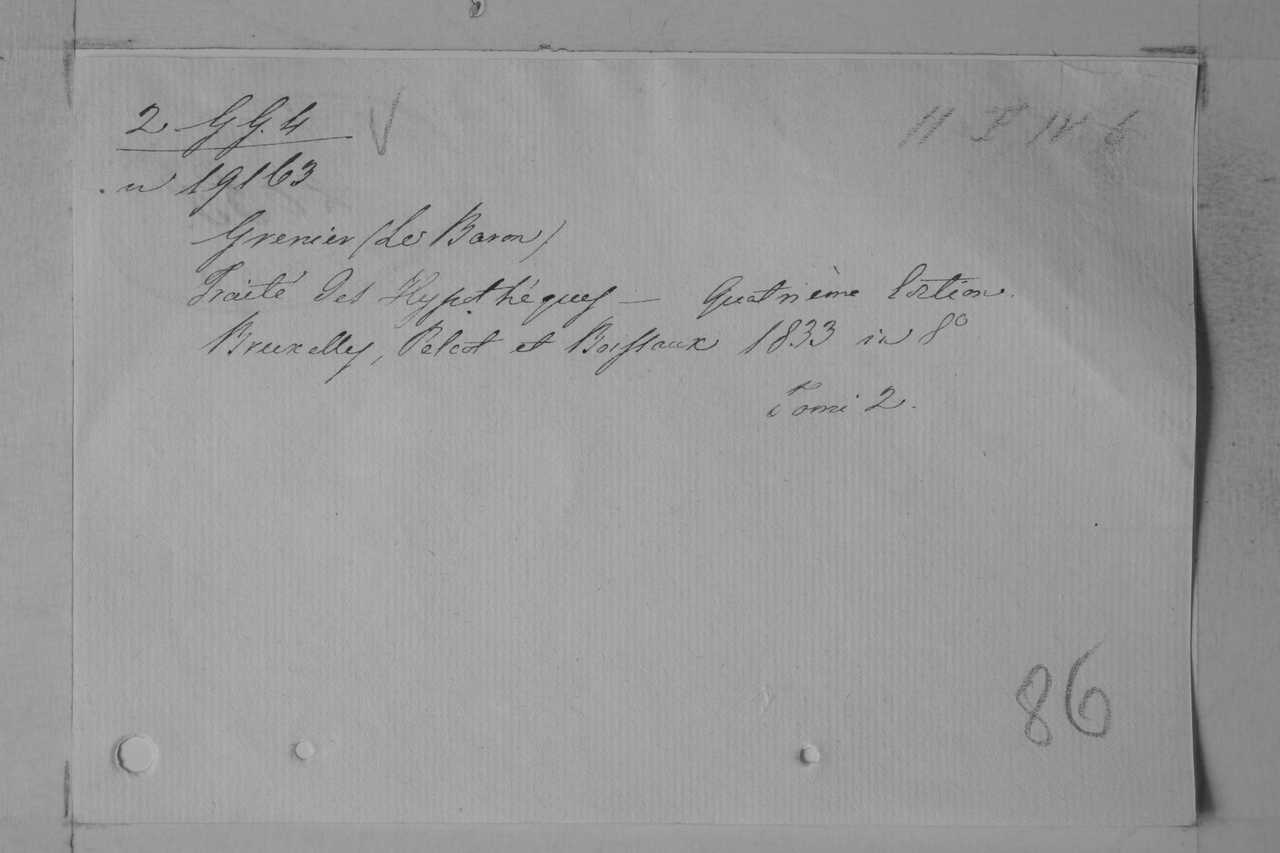 2 GG. 4 V
n 19163
Grenier (Le Baron)
Traité des Hypothéques — Quatrième Edition.
Bruxelles, Pelcot et Boissaux 1833 in 8°
Tome 2.
86